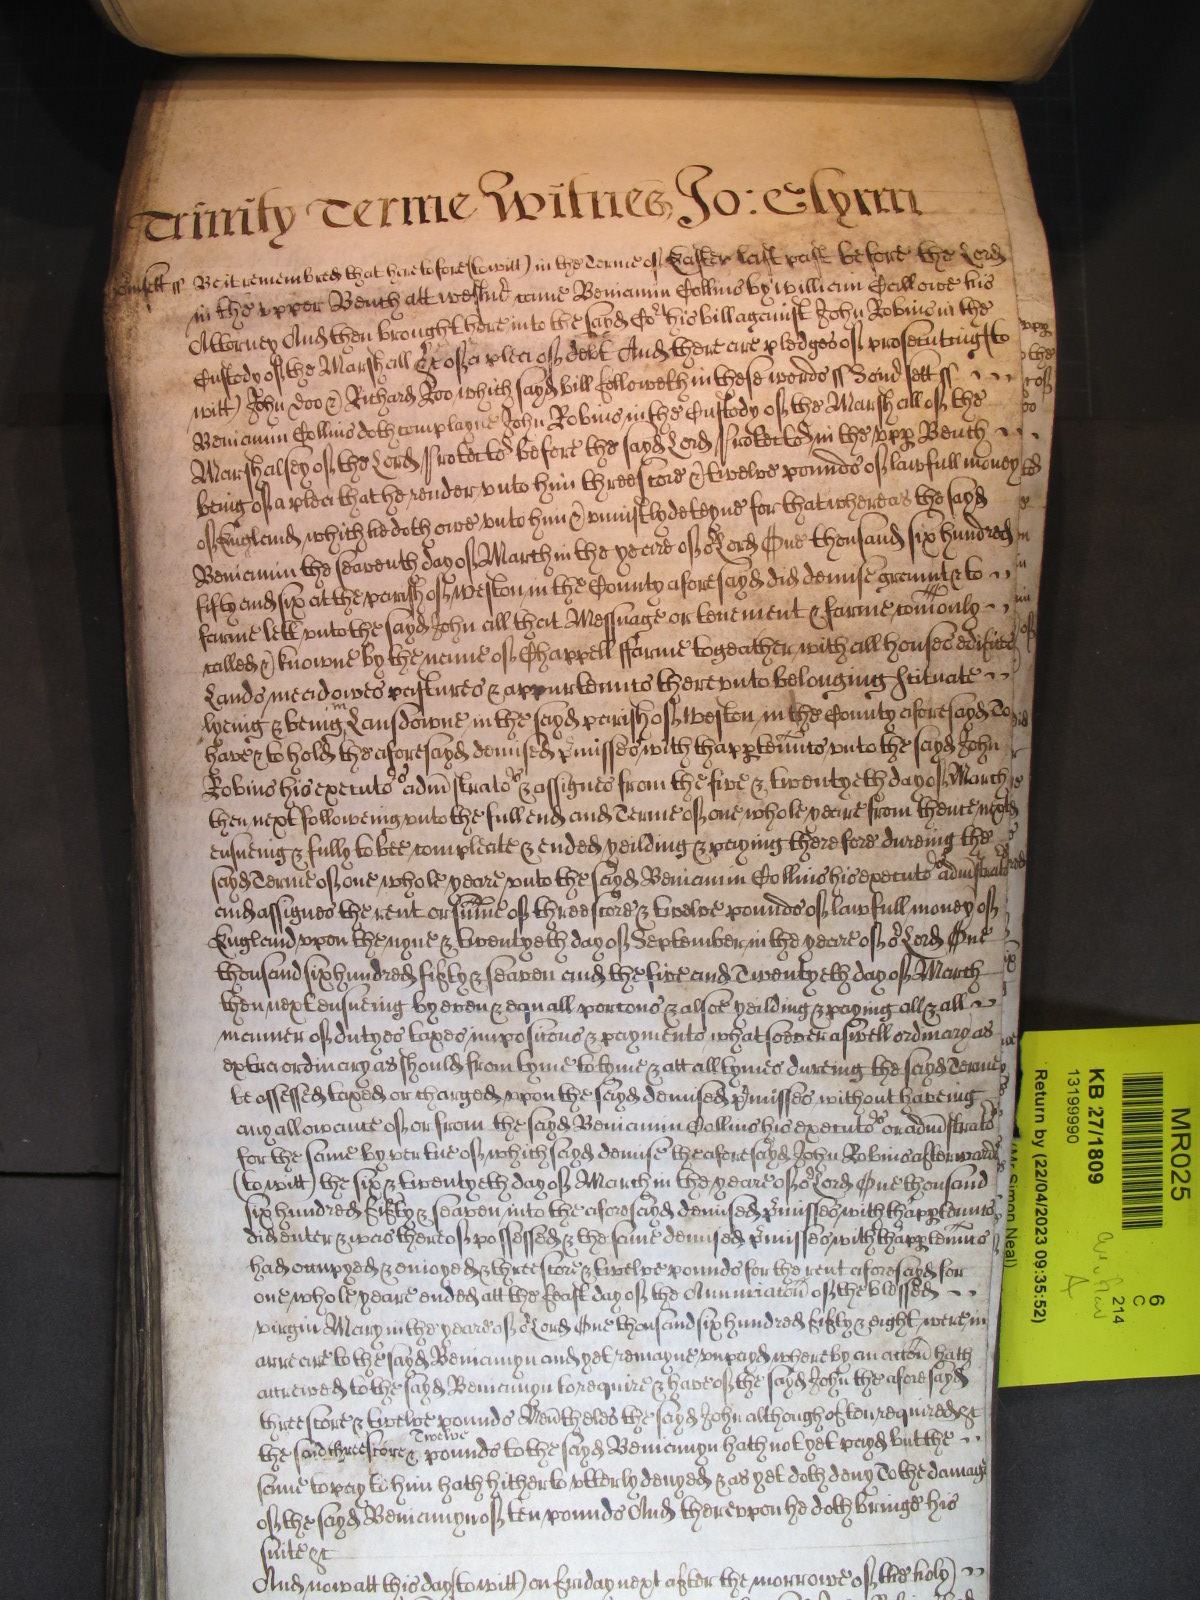 Trinity Terme Witnes Jo: Glynn
Somsett ss Be it remembred that heretofore (to witt) in the Terme of Easter last past before the Lord
in the upper Bench att Westmr came Beniamin Collins by william Callowe his
Attorney And then brought here into the sayd Cot his bill against John Robins in the
Custody of the Marshall &c of a plea of debt And there are pledges of prosecuting (to
witt) John Doo & Richard Roo which sayd bill followeth in these words ss Somsett ss
Beniamin Collins doth complayne John Robins in the Custody of the Marshall of the
Marshalsey of the Lord Protector before the sayd Lord Protector in the upp Bench
being of a plea that he render unto him threescore & twelve pounds of lawfull money
of England which he doth owe unto him & uniustly deteyne for that whereas the sayd
Beniamin the seaventh day of March in the yeare of or Lord One thousand six hundred
fifty and six at the parish of Weston in the County aforesayd did demise graunt & to
farme lett unto the sayd John all that Messuage or tenement & farme comonly
called & knowne by the name of Chappell ffarme togeather with all houses edifices
Lands meadowes pastures & appurtennts thereunto belonging scituate
lyeing & being in Lansdowne in the sayd parish of Weston in the County aforesayd To
have & to hold the aforesayd demised pmisses with thapptennts unto the sayd John
Robins his executors admistrators & assignes from the five & twentyeth day of March
then next following unto the full end and Terme of one whole yeare from thence next
ensueing & fully to bee compleate & ended yeilding & paying therefore dureing the
sayd Terme of one whole yeare unto the sayd Beniamin Collins his executors admistrators
and assignes the rent or summe of threescore & twelve pounds of lawfull money of
England upon the nyne & twentyeth day of September in the yeare of or Lord One
thousand six hundred fifty & seaven and the five and Twentyeth day of March
then next ensueing by even & equall portons & alsoe yeilding & paying all & all
manner of dutyes taxes impositons & payments whatsoever aswell ordinary as
extraordinary as should from tyme to tyme & att all tymes dureing the sayd Terme
be assessed taxed or charged upon the sayd demised pmisses without haveing
any allowance of or from the sayd Beniamin Collins his executors or admistrators
for the same by vertue of which sayd demise the aforesayd John Robins afterwards
(to witt) the six & twentyeth day of March in the yeare of or Lord One thousand
six hundred fifty & seaven into the aforesayd demised pmisses with thapptennts
did enter & was thereof possessed & the same demised pmisses with thapptennts
had occupyed & enioyed & threescore & twelve pounds for the rent aforesayd for
one whole yeare ended att the feast day of the Annunciaton of the blessed
virgin Mary in the yeare of or Lord One thousand six hundred fifty & eight were in
arreare to the sayd Beniamyn and yet remayne unpayd whereby an acton hath
accrewed to the sayd Beniamyn to require & have of the sayd John the aforesayd
threescore & twelve pounds Neuertheles the sayd John although often required &c
the sayd threescore & Twelve pounds to the sayd Beniamyn hath not yet payd but the
same to pay to him hath hitherto utterly denyed & as yet doth deny To the damage
of the sayd Beniamyn of ten pounds And thereupon he doth bringe his
suite &c
And now att this day (to witt) on Friday next after the morrowe of the holy
MR025
KB 27/1809
13199990
6
C
214
Return by (22/04/2023 09:35:52)
(Mr Simon Neal)